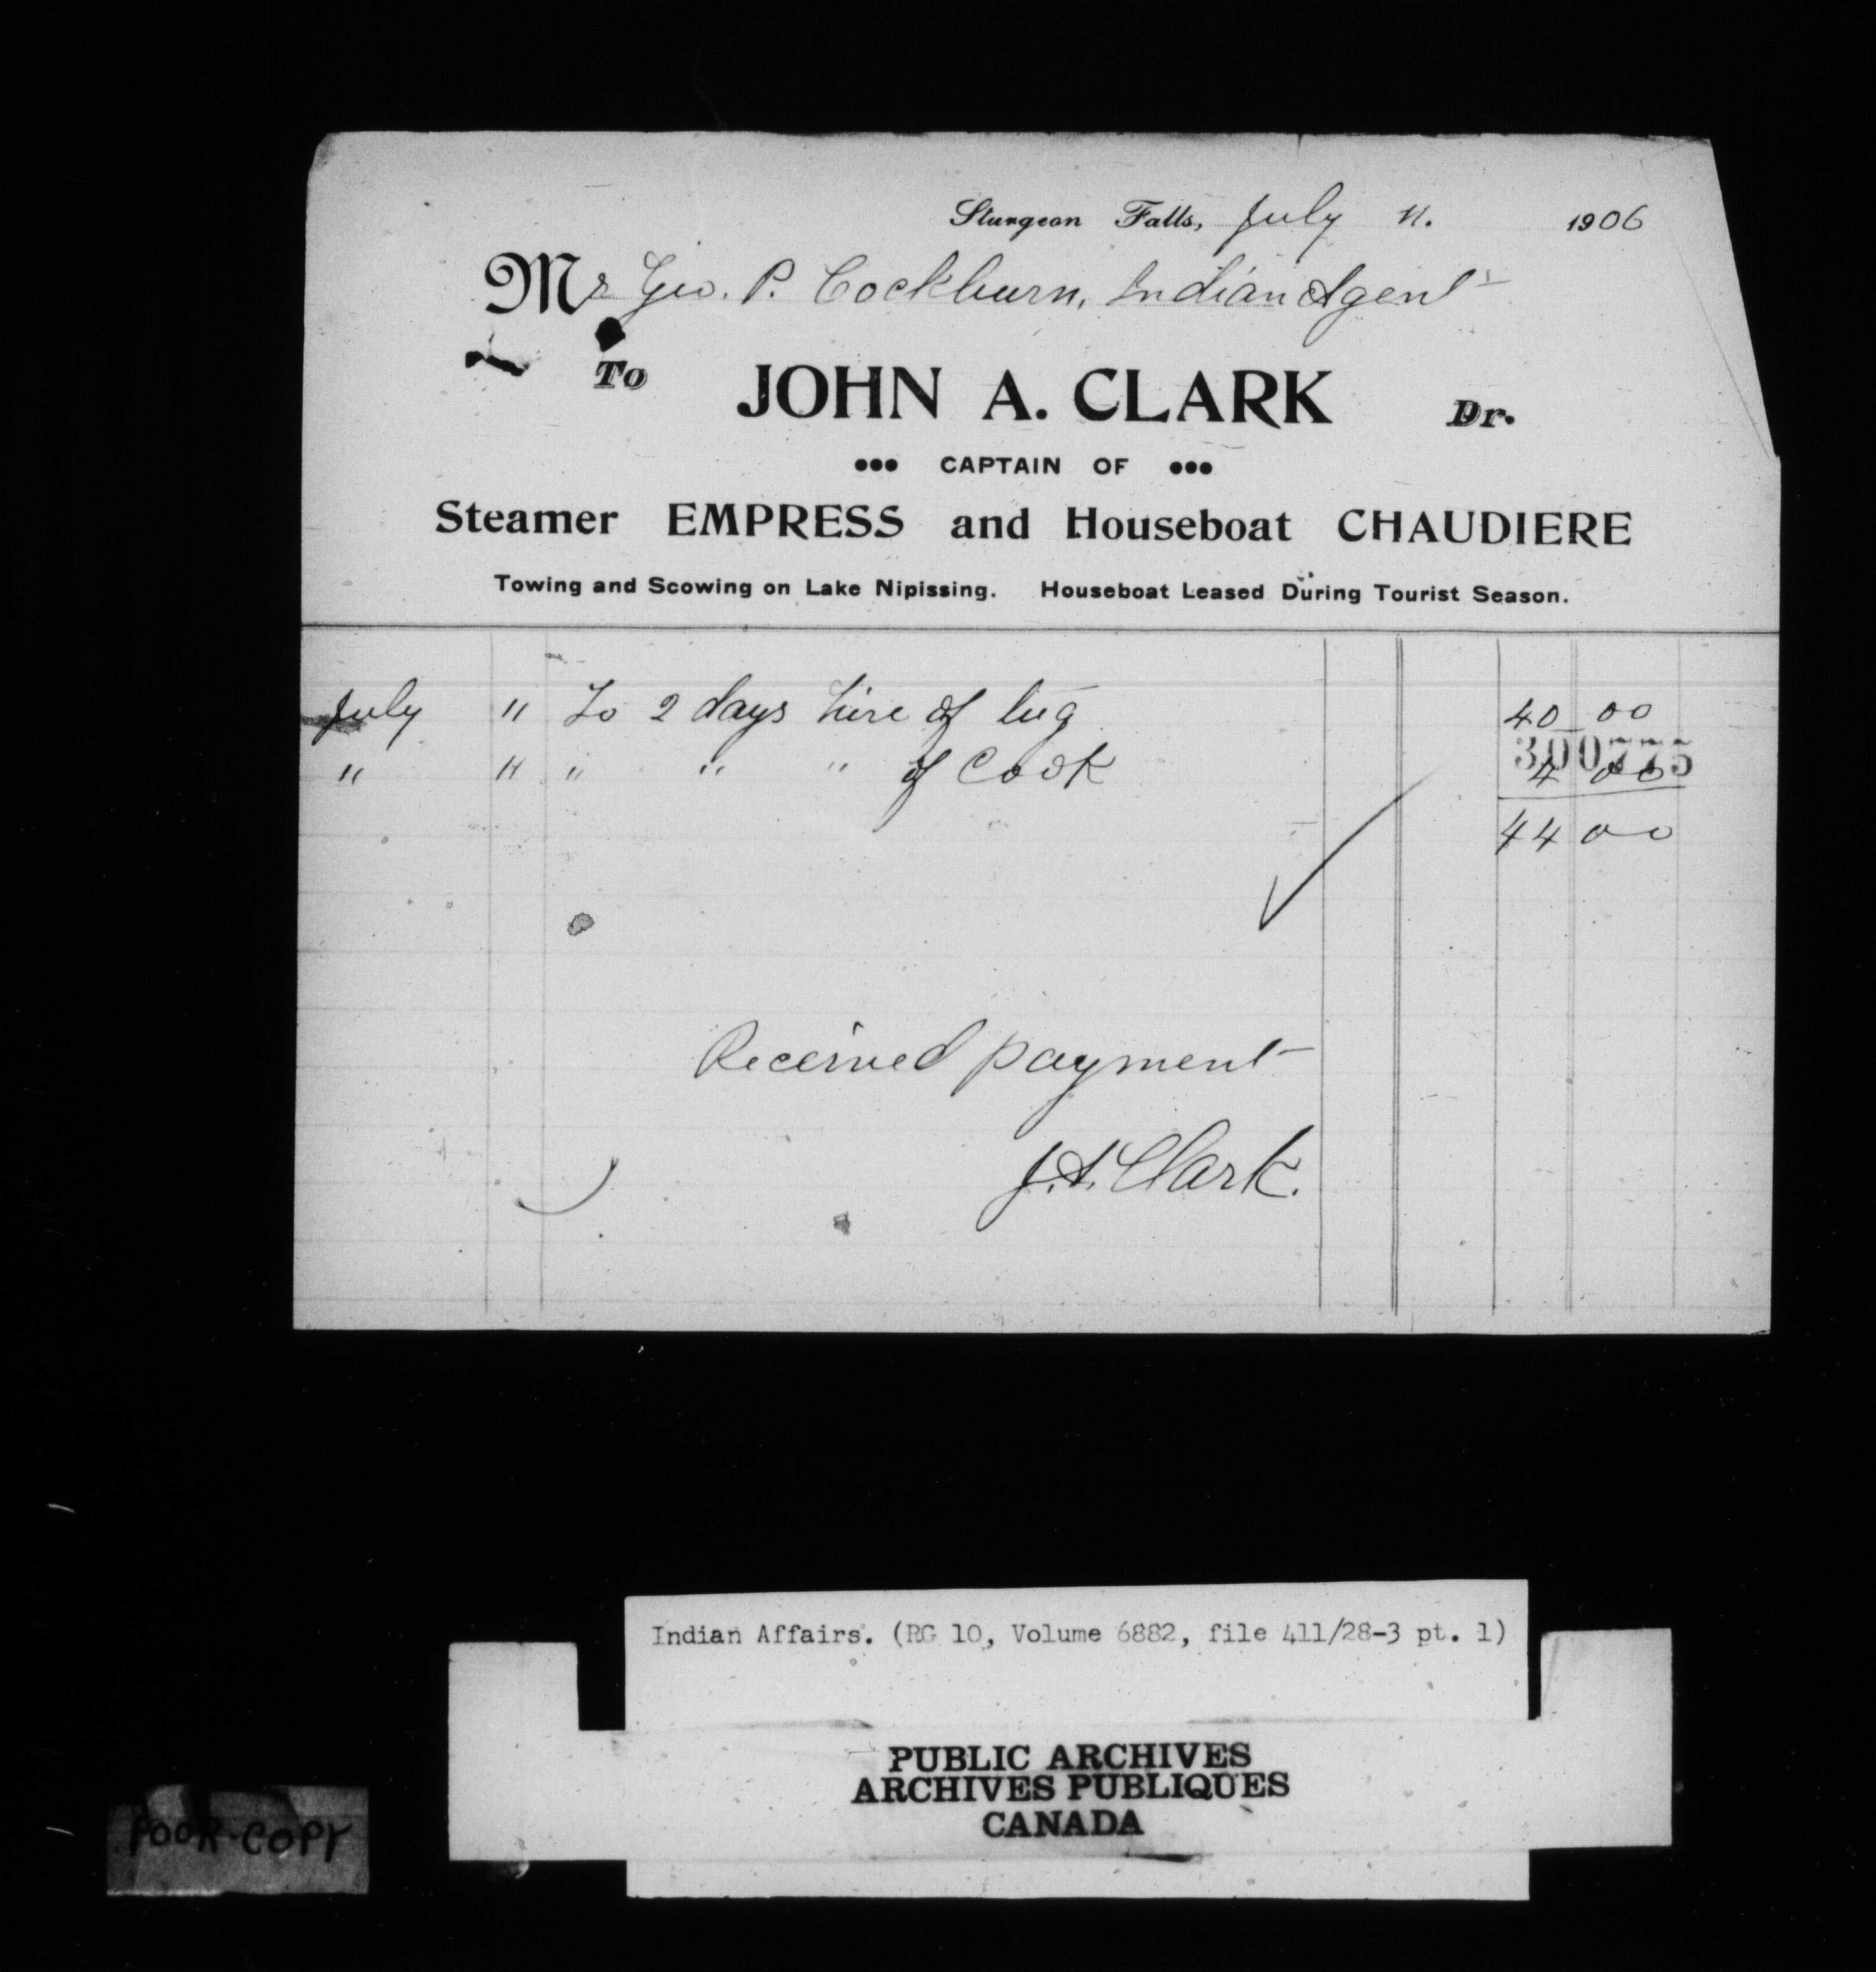 Sturgeon Falls, July 11. 1906
Mr Geo. P. Cockburn, Indian Agent
To JOHN A. CLARK Dr.
••• CAPTAIN OF •••
Steamer EMPRESS and Houseboat CHAUDIERE
Towing and Scowing on Lake Nipissing. Houseboat Leased During Tourist Season.
July 11 To 2 days hire of tug 40 00
300775
" 11 " " " of Cook 4 00
44 00
Received payment
J.A. Clark.
Indian Affairs. (RG 10, Volume 6882, file 411/28-3 pt. 1)
PUBLIC ARCHIVES
ARCHIVES PUBLIQUES
CANADA
POOR COPY